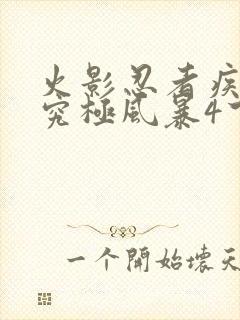 火影忍者疾
究极風暴4
一个開始壞天